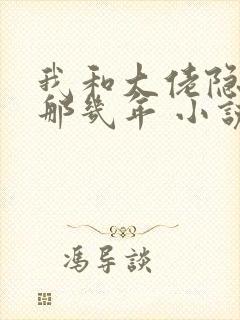 我和大佬隐
那几年 小说
冯导談